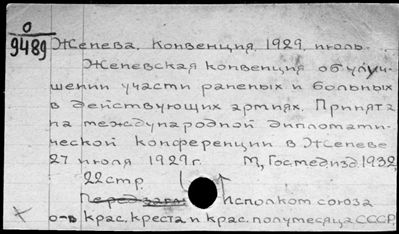 О
9489
Женева. Конвенция, 1929, июль.
Женевская конвенция об улуч-
шении участи раненых и больных
в действующих армиях. Принята
на международной дипломати-
ческой конференции в Женеве
27 июля 1929 г. М, Госмедизд. 1932,
22 стр.
Исполком союза
о-в крас. креста и крас. полумесяца СССР